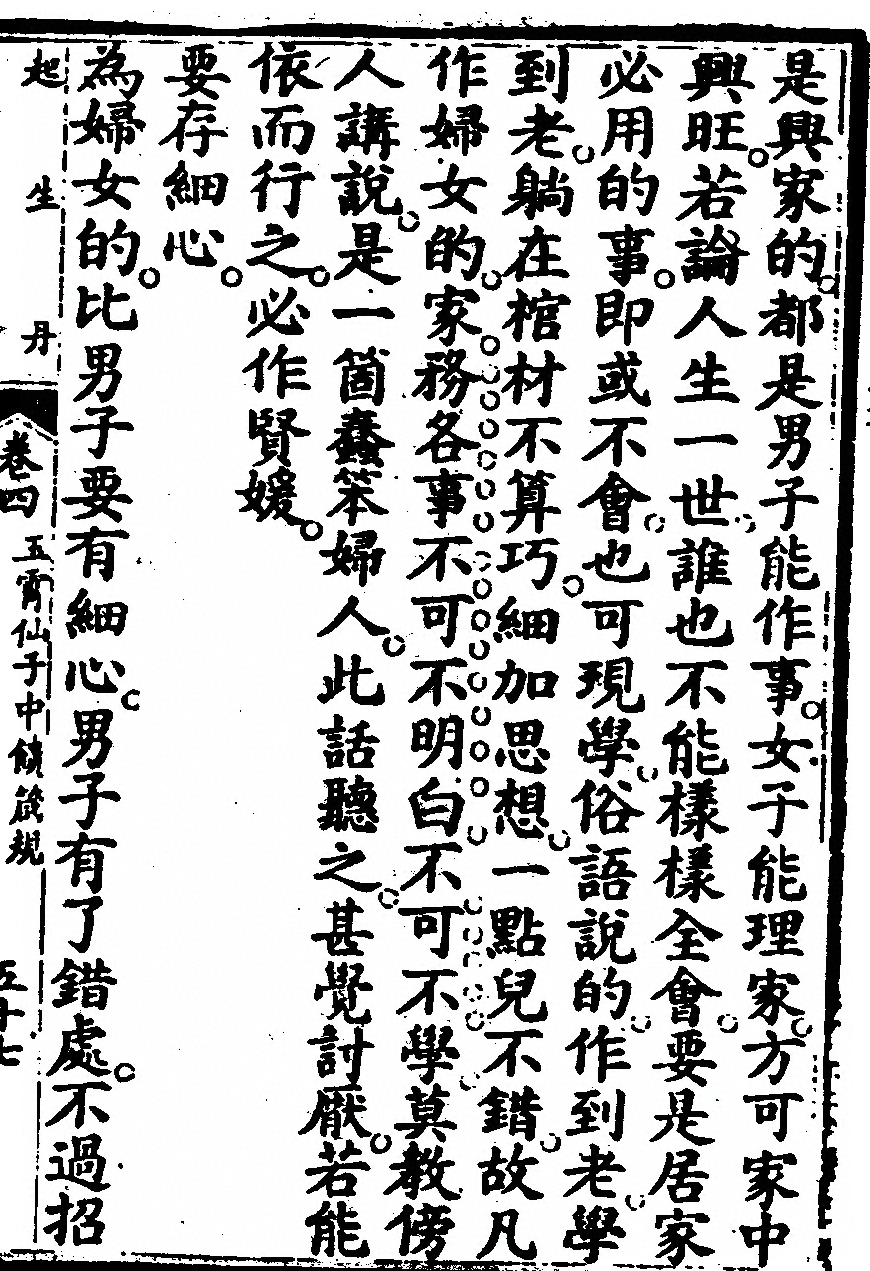 是興家的都是男子能作事女子能理家方可家中
興旺若論人生一世誰也不能樣樣全會要是居家
必用的事即或不會也可現學俗語說的作到老學
到老躺在棺材不算巧細加思想一點兒不錯故凡
作婦女的家務各事不可不明白不可不學莫教傍
人講說是一箇蠢笨婦人此話聽之甚覺討厭若能
依而行之必作賢媛
要存細心
為婦女的比男子要有細心男子有了錯處不過招
起生丹
卷四 玉霄仙子中饋箴規 五十七